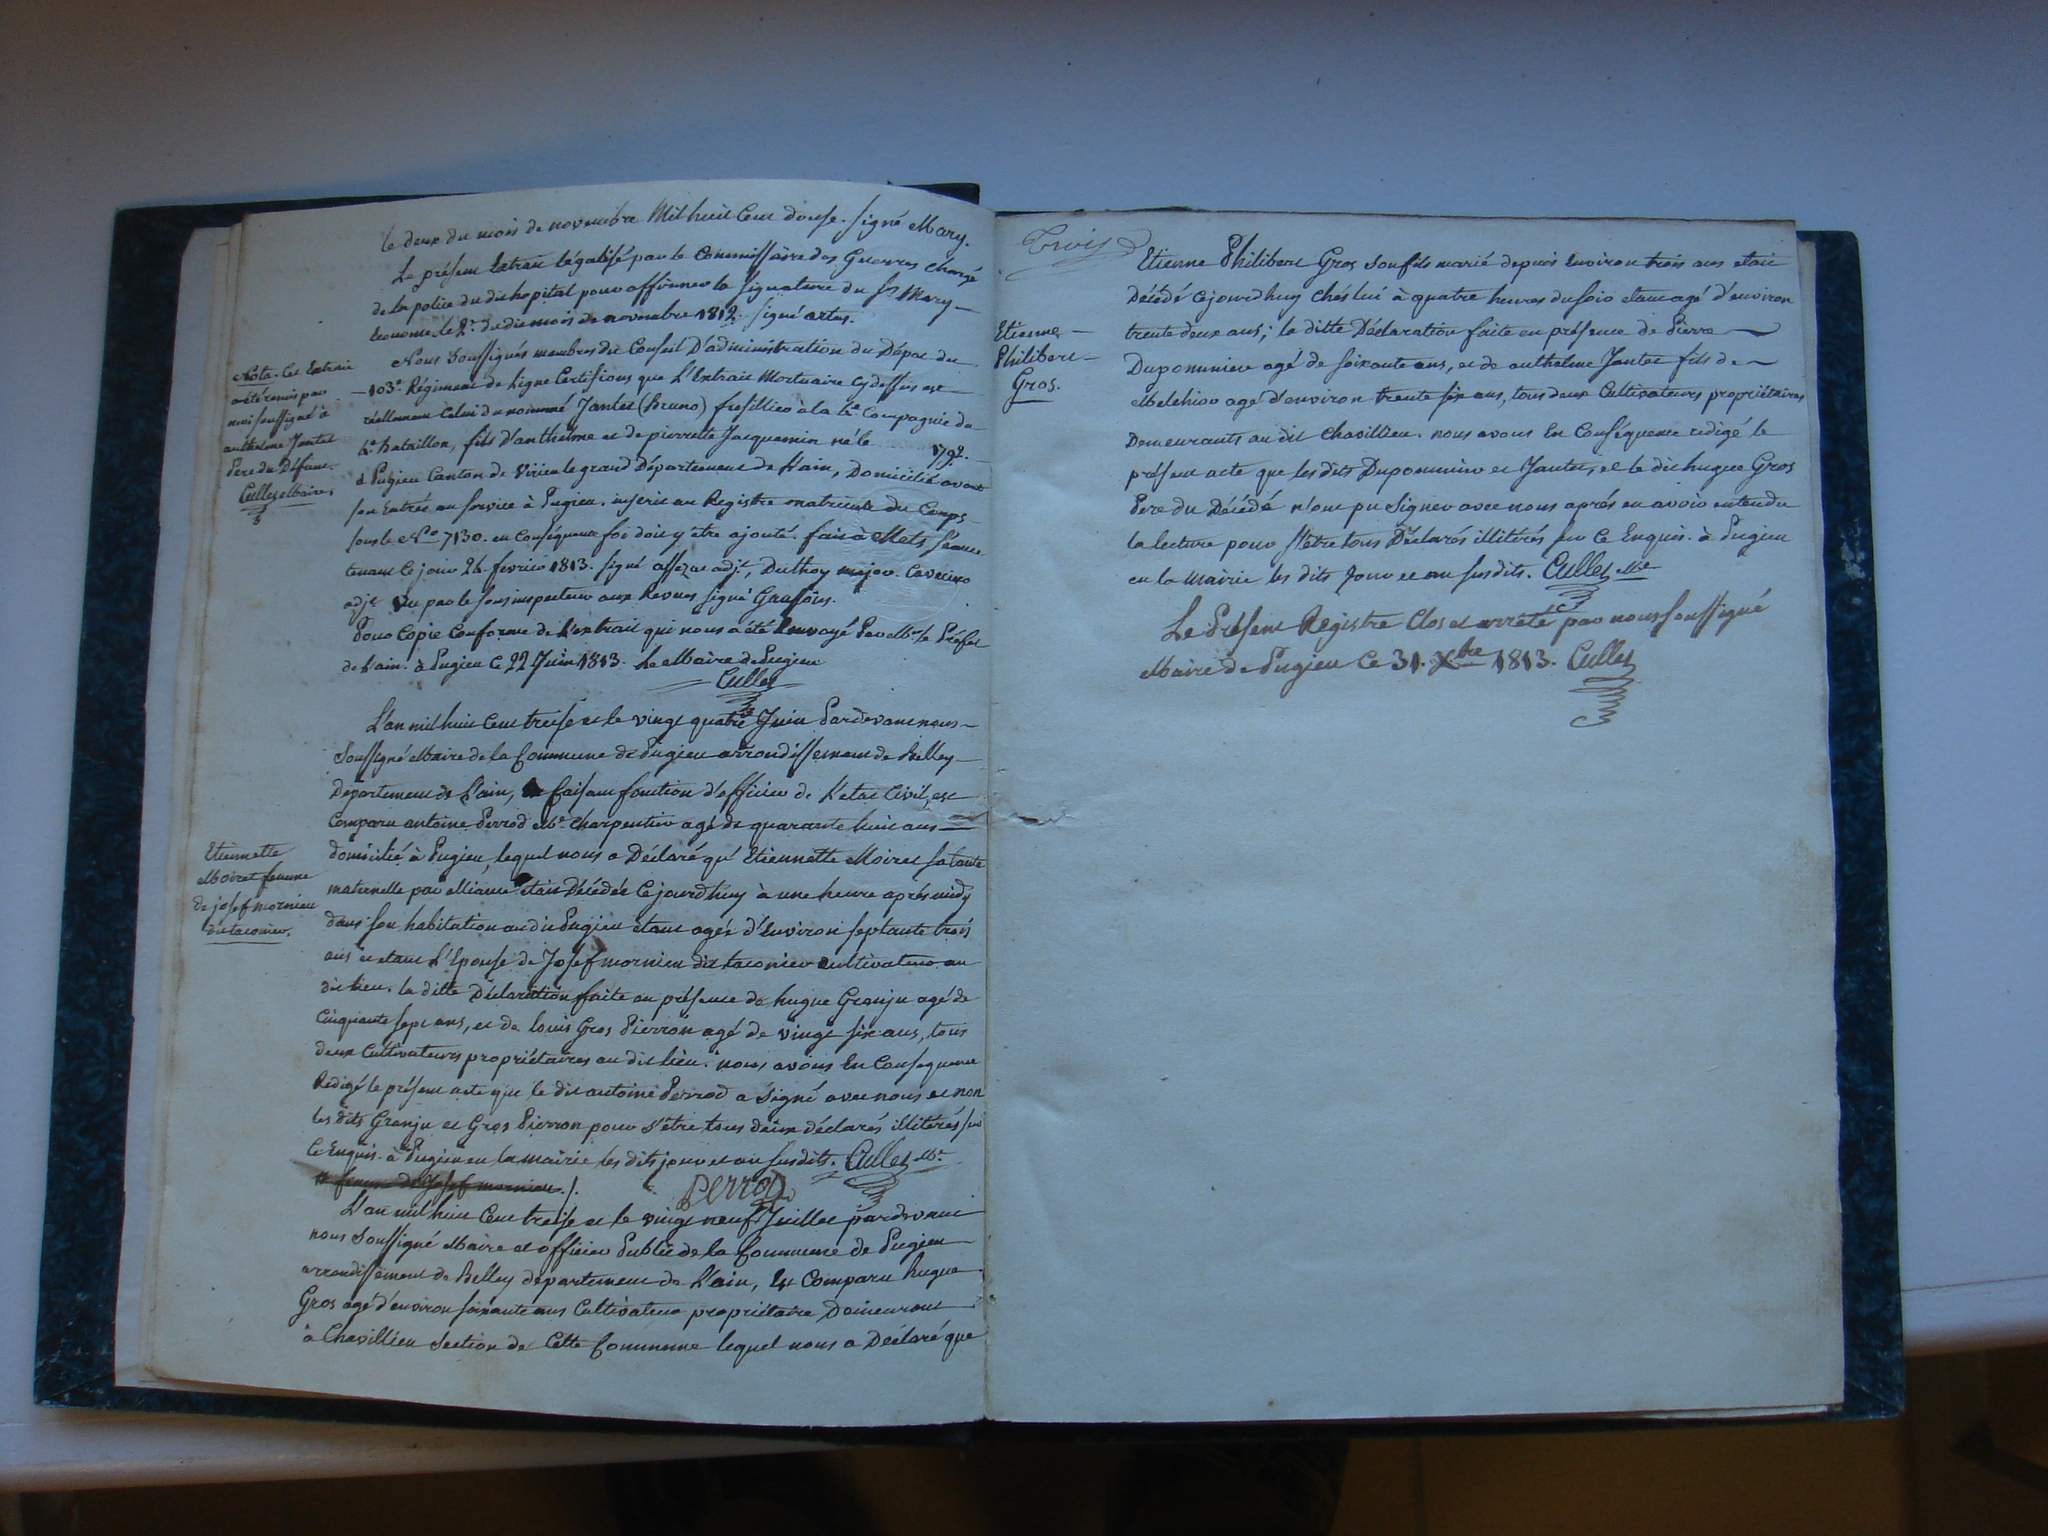 le deux du mois de novembre Mil huit Cent douse. signé Mary.
Le présent Extrait légalisé par le Commissaire des Guerres chargé
de la police du dit hopital pour affirmer la signature du Sr Mary
Econome le 2e du dit mois de novembre 1812. signé artus.
Nous Soussignés membres du Conseil D'administration du Dépot du
103e Régiment de Ligne Certifions que L'Extrait Mortuaire cy dessus est
réellement Celui du nommé Jantet (Bruno) fusillier à la 4e Compagnie du
4e Bataillon, fils d'anthelme et de pierrette Jacquemin né le 1792.
à Pugieu Canton de Virieu le grand Département de l'ain, Domicilié avant
son Entrée au service à Pugieu. inscrit au Registre matricule du Corps
sous le No 7130. en Conséquence foi doit y être ajouté. fait à Mets séance
tenant Ce jour 24. fevrier 1813. signé adjt, Duthoy major.
adjt Vu par le sous inspecteur aux Revues signé
Pour Copie Conforme de L'extrait qui nous a été Envoyé Par Mr le Préfet
de l'ain. à Pugieu Ce 22 Juin 1813. Le Maire de Pugieu
Cullet
Nota. Cet Extrait
a été remis par
moi soussigné à
anthelme Jantet
Pere du Défunt.
Cullet Maire
L'an mil huit Cent treise et le vingt quatre Juin Pardevant nous
Soussigné Maire de la Commune de Pugieu arrondissement de Belley
Département de L'ain, faisant fonction d'officier de L'etat Civil, est
Comparu antoine Perrod Me Charpentier agé de quarante huit ans
domicilié à Pugieu, lequel nous a Déclaré qu' Etiennette Moiret sa tante
maternelle par alliance étoit Décédée Cejourd'huy à une heure après midy
dans son habitation au dit Pugieu étant agée d'Environ septante trois
ans et etant L'Epouse de Josef mornieu dit taconier cultivateur au
dit lieu. la ditte Déclaration faite en présence de hugue Granju agé de
Cinquante sept ans, et de louis Gros Pierron agé de vingt six ans, tous
deux Cultivateurs propriétaires au dit lieu. nous avons En Consequence
Rédigé le présent acte que le dit antoine Perrod a signé avec nous et non
les dits Granju et Gros Pierron pour s'être tous deux déclarés illitérés sur
Ce Enquis. à Pugieu en la mairie les dits jour et an susdits. Cullet Me
femme de Josef mornieu ./. Perrod
Etiennette
Moiret femme
de josef mornieu
dit taconier.
L'an mil huit Cent treise et le vingt neuf Juillet pardevant
nous Soussigné Maire et officier Public de la Commune de Pugieu
arrondissement de Belley département de L'ain, Est Comparu hugue
Gros agé d'environ soixante ans Cultivateur propriétaire Demeurant
à Chavillieu section de Cette Commune lequel nous a Déclaré que
Trois
Etienne Philibert Gros son fils marié depuis Environ trois ans etait
Décédé Cejourdhuy chés lui à quatre heures du soir etant agé d'environ
trente deux ans; la ditte Déclaration faite en présence de Pierre
Duponmier agé de soixante ans, et de anthelme Jantet fils de
Melchior agé d'environ trente six ans, tous deux Cultivateurs propriétaires
Demeurants au dit Chavillieu. nous avons En Conséquence rédigé le
présent acte que les dits Duponmier et Jantet, et le dit hugue Gros
Pere du Décédé n'ont pu signer avec nous après en avoir entendu
la lecture pour s'être tous Déclarés illitérés sur Ce Enquis. à Pugieu
en la Mairie les dits Jour et an susdits. Cullet Me
Etienne
Philibert
Gros.
Le Présent Registre Clos et arrété par nous soussigné
Maire de Pugieu Ce 31. Xbre 1813. Cullet